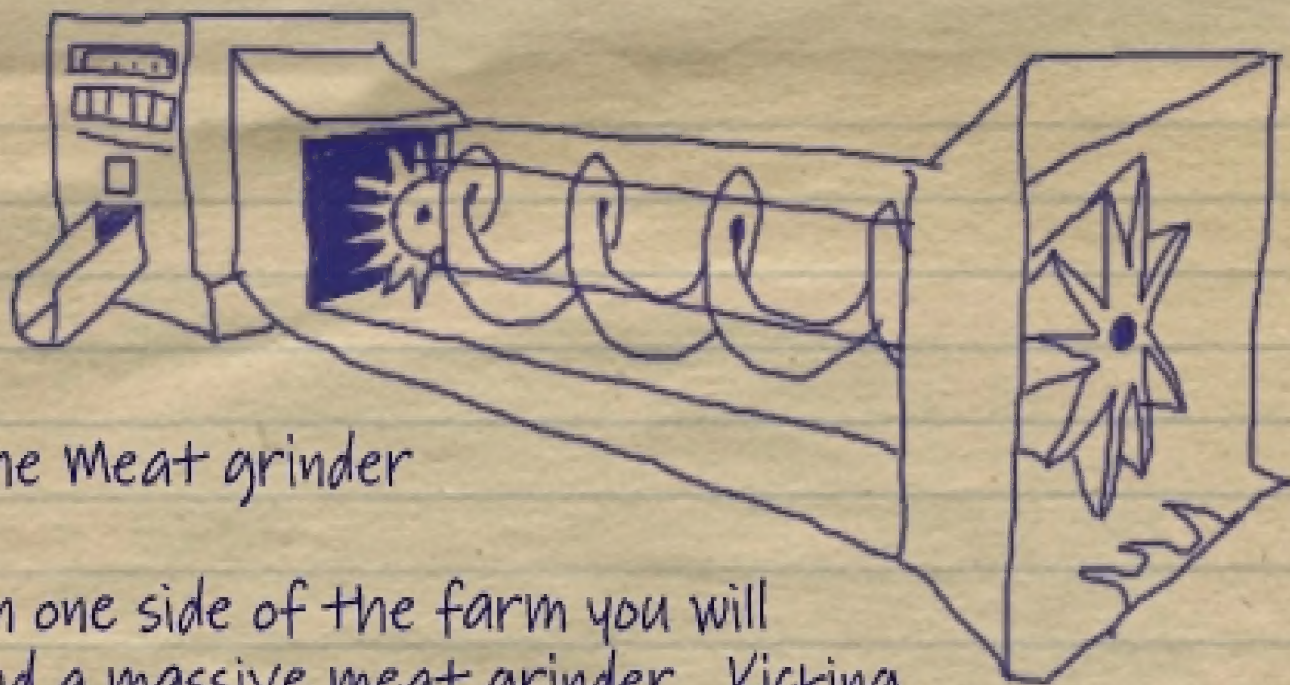 he Meat grinder
n one side of the farm you will
nd a massive meat grinder. Vicking